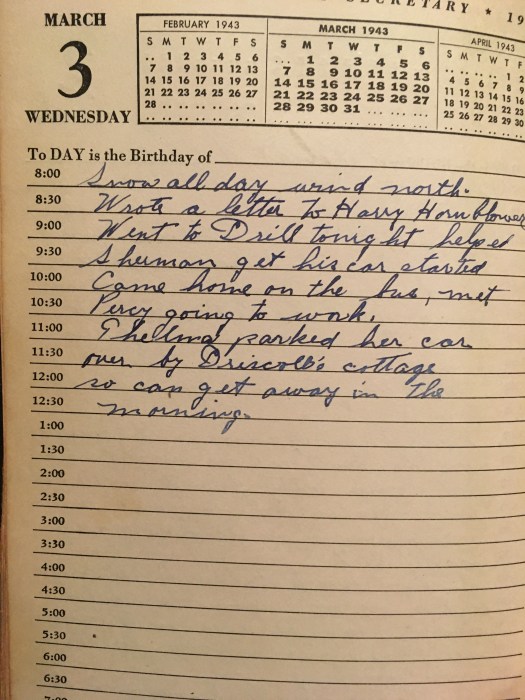 SECRETARY ★ 19
MARCH
3
WEDNESDAY
FEBRUARY 1943
S M T W T F S
.. 1 2 3 4 5 6
7 8 9 10 11 12 13
14 15 16 17 18 19 20
21 22 23 24 25 26 27
28 .. .. .. .. .. ..
.. .. .. .. .. .. ..
MARCH 1943
S M T W T F S
... 1 2 3 4 5 6
7 8 9 10 11 12 13
14 15 16 17 18 19 20
21 22 23 24 25 26 27
28 29 30 31 ... ... ...
APRIL 1943
S M T W T F
.. .. .. .. 1 2
4 5 6 7 8 9
11 12 13 14 15 16
18 19 20 21 22 23
25 26 27 28 29 30
To DAY is the Birthday of
8:00 Snow all day wind north.
8:30 Wrote a letter to Harry Hornblower
9:00 Went to Drill tonight helped
9:30 Sherman get his car started
10:00 Came home on the bus, met
10:30 Percy going to work.
11:00 Thelma parked her car
11:30 over by Driscoll's cottage
12:00 so can get away in the
12:30 morning.
1:00
1:30
2:00
2:30
3:00
3:30
4:00
4:30
5:00
5:30
6:00
6:30